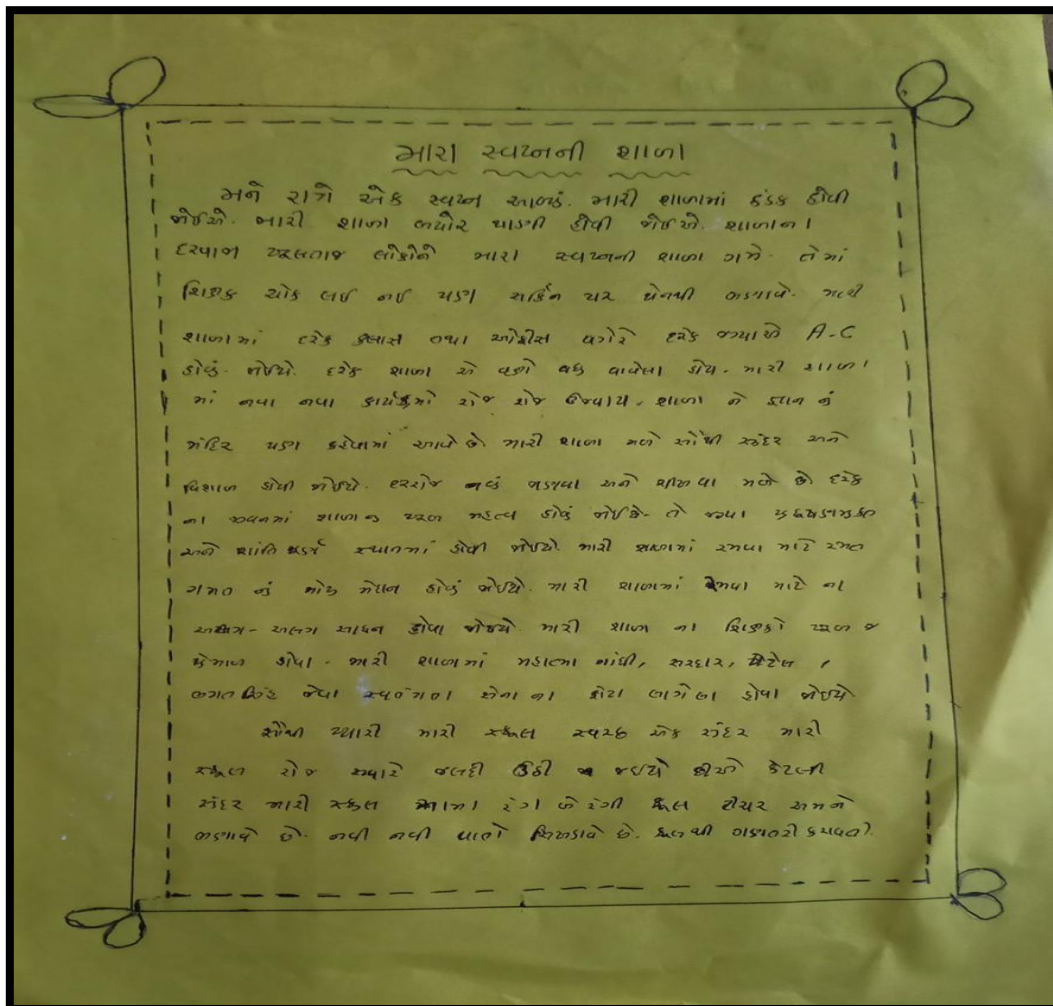 મારા સ્વપ્નની શાળા
મને રાત્રે એક સ્વપ્ન આવ્યું. મારી શાળામાં ઠંડક હોવી
જોઈએ. મારી શાળા બપોર પાળી હોવી જોઈએ. શાળાના
દરવાજા ખૂલતાજ લોકોને મારા સ્વપ્નની શાળા ગમે. તેમાં
શિક્ષક ચોક લઈ નઈ પણ સ્ક્રિન પર પેનથી ભણાવે. મારી
શાળામાં દરેક ક્લાસ તથા ઓફીસ વગેરે દરેક જગ્યાએ A-C
હોવું જોઈયે. દરેક શાળા એ વૃક્ષો વધુ વાવેલા હોય. મારી શાળા
માં નવા નવા કાર્યક્રમો રોજ રોજ ઉજવાય. શાળા ને જ્ઞાન નું
મંદિર પણ કહેવામાં આવે છે મારી શાળા મળે સૌથી સુંદર અને
વિશાળ હોવી જોઈયે. દરરોજ નવું ભણવા અને શીખવા મળે છે દરેક
ના જીવનમાં શાળાનુ ખૂબ મહત્વ હોવું જોઈએ. તે જગ્યા પ્રદુષણમુક્ત
અને શાંતિ પૂર્ણ સ્થાનમાં હોવી જોઈયે. મારી શાળામાં રમવા માટે રમત
ગમત નું મોટુ મેદાન હોવું જોઈયે. મારી શાળામાં રમવા માટે ના
અલગ-અલગ સાધન હોવા જોઈયે. મારી શાળા ના શિક્ષકો ખૂબ જ
પ્રેમાળ હોવા. મારી શાળામાં મહાત્મા ગાંધી, સરદાર, પટેલ,
ભગતસિંહ જેવા સેના ના ફોટા લાગેલા હોવા જોઈયે
સૌથી પ્યારી મારી સ્કૂલ સ્વચ્છ એક સુંદર મારી
સ્કૂલ રોજ સવારે જલદી ઉઠી જઈયે છીએ કેટલી
સુંદર મારી સ્કૂલ આમા રંગ બે રંગી ફૂલ ટીચર અમને
ભણાવે છે. નવી નવી વાતો શિખડાવે છે. ફૂલથી ગણતરી